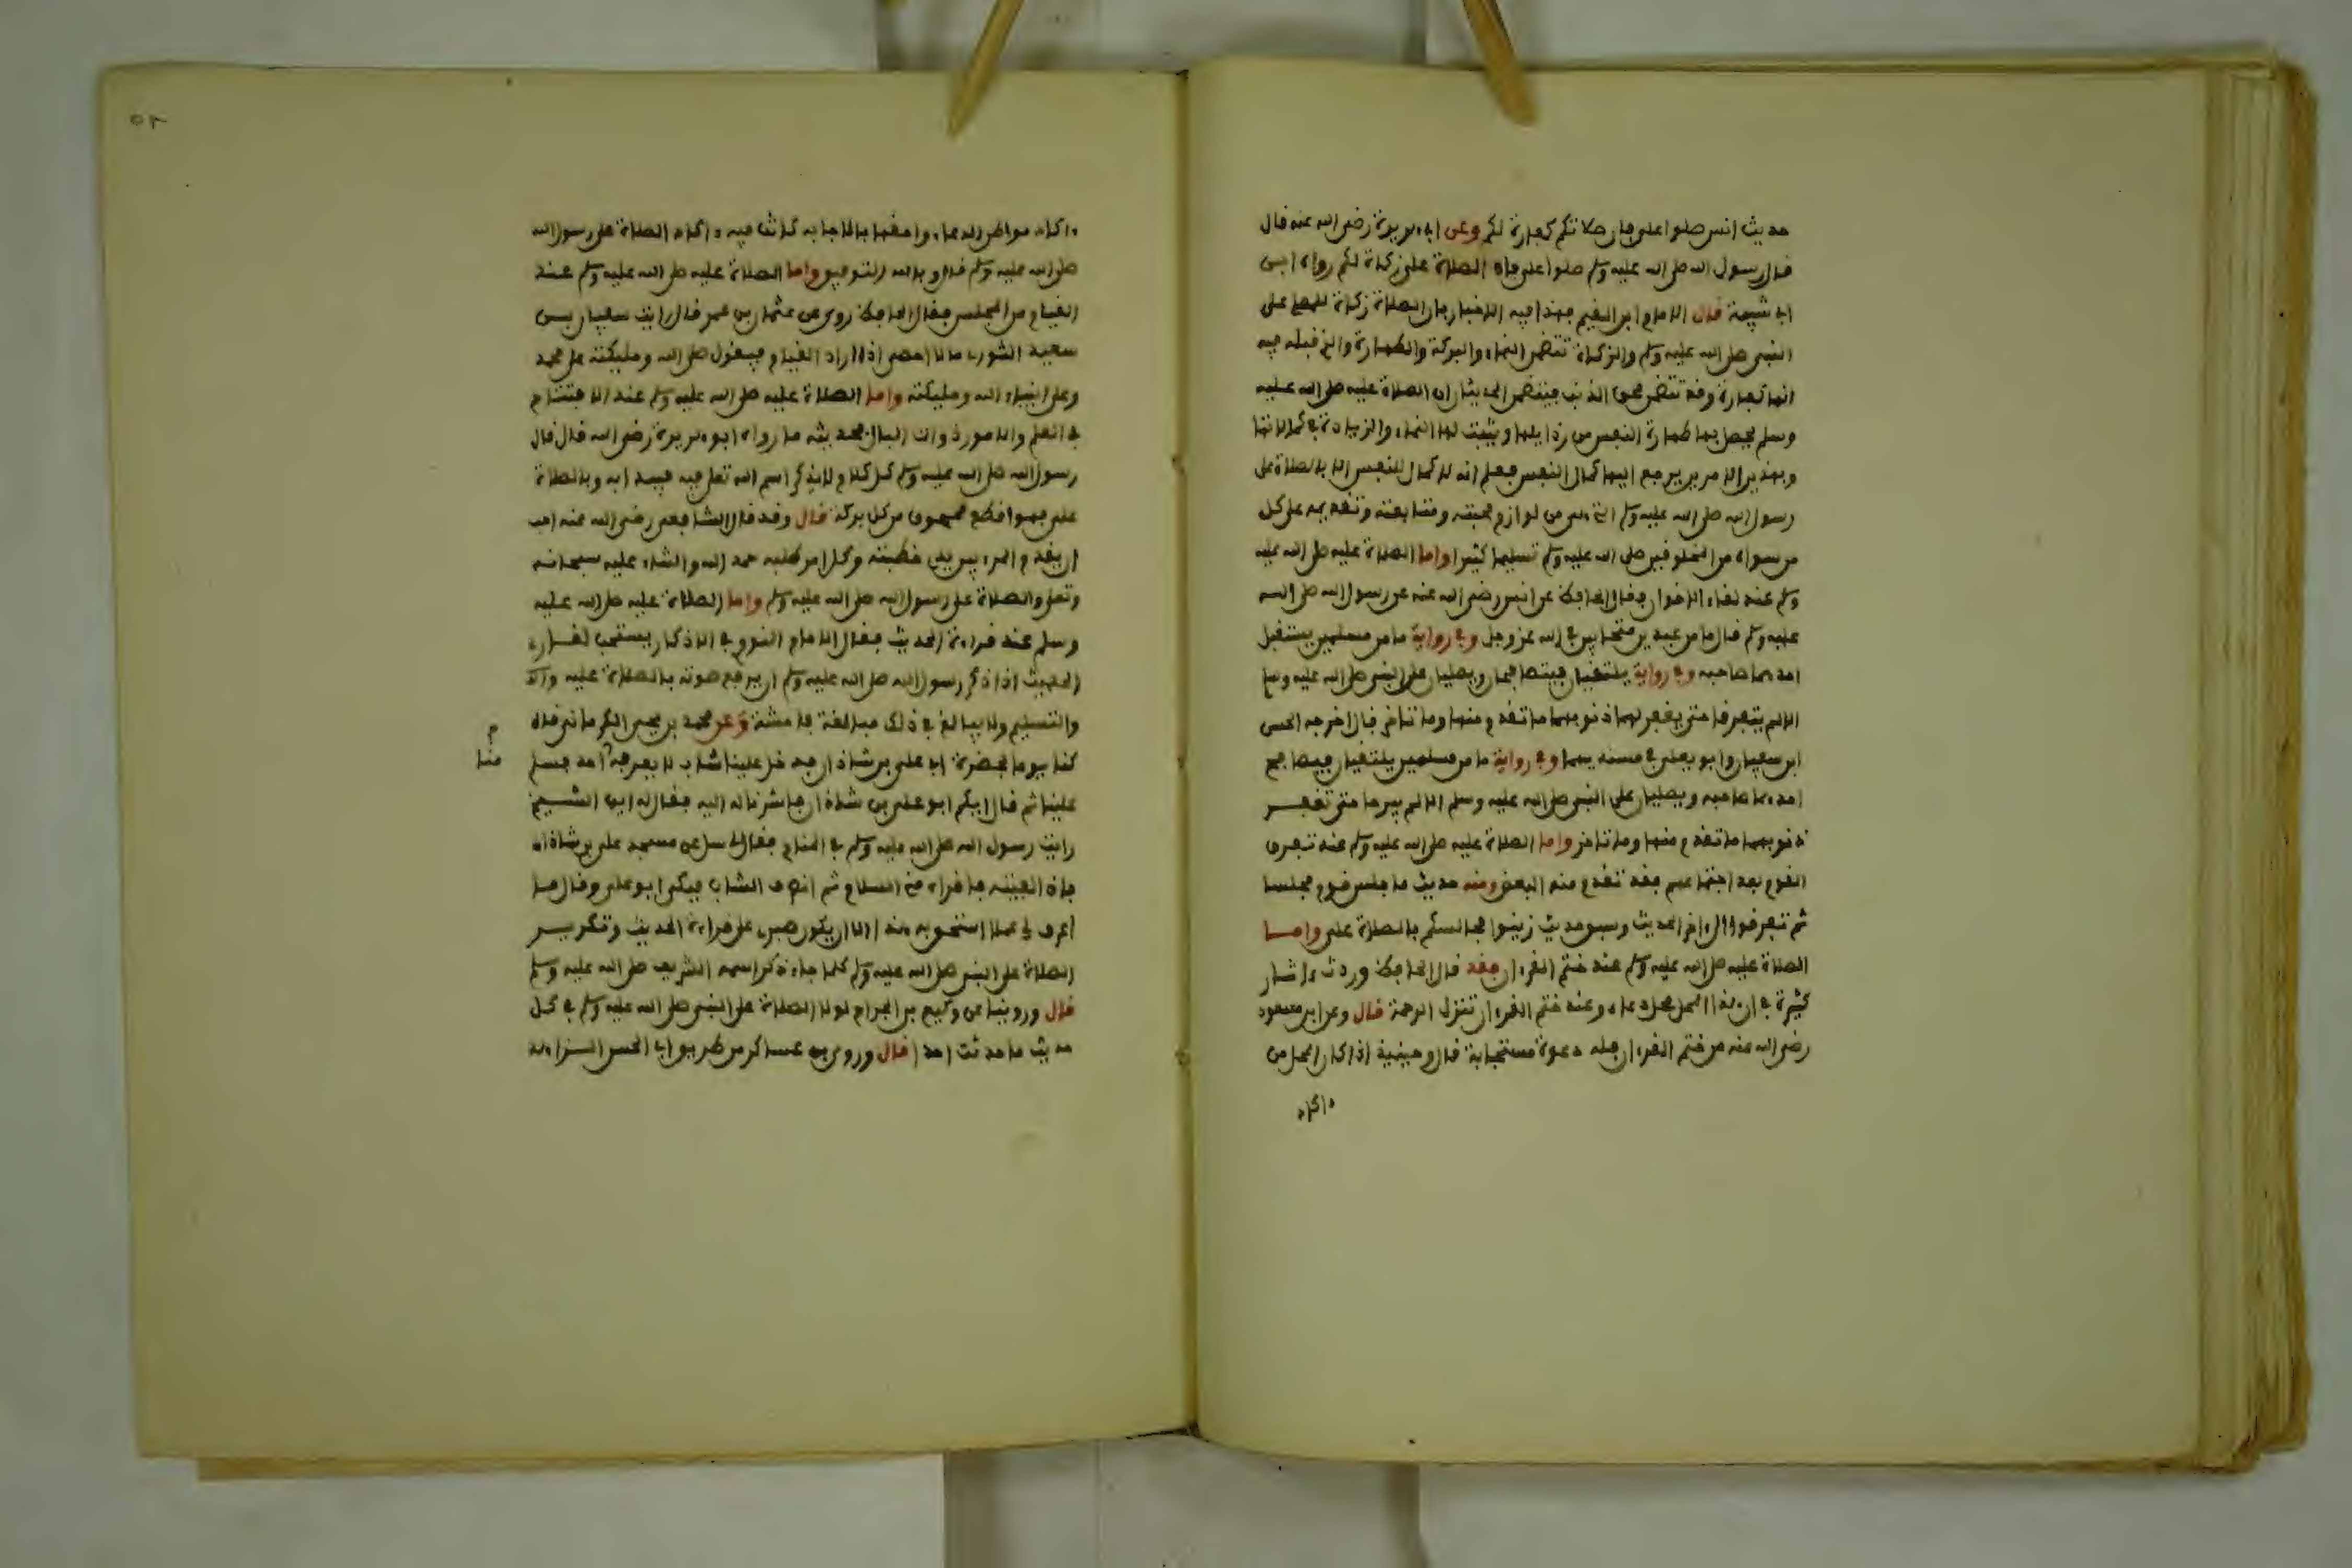 حديث انس صلوا علي فإن صلاتكم كفارة لكم وعن ابي هريرة رضي الله عنه قال
قال رسول الله صلى الله عليه وسلم صلوا علي فإن الصلاة علي زكاة لكم رواه ابن
ابي شيبة قال الامام ابن القيم فهذا فيه الاخبار بان الصلاة زكاة للمصلي على
النبي صلى الله عليه وسلم والزكاة تتضمن النماء والبركة والطهارة والذي قبله فيه
انها كفارة وقد تتضمن محو الذنب فيتضمن الحديثان ان الصلاة عليه صلى الله عليه
وسلم يحصل بها طهارة النفس من رذايلها ويثبت لها النماء والزيادة في كمالاتها
وبهذين الامرين يرجع اليها كمال النفس فعلم انه لا كمال للنفس الا بالصلاة على
رسول الله صلى الله عليه وسلم التي هي من لوازم محبته ومتابعته وتقديمه على كل
من سواه من المخلوقين صلى الله عليه وسلم تسليما كثيرا واما الصلاة عليه صلى الله عليه
وسلم عند لقاء الاخوان فقال الحافظ عن انس رضي الله عنه عن رسول الله صلى الله
عليه وسلم قال ما من عبدين متحابين في الله عز وجل وفي رواية ما من مسلمين يستقبل
احدهما صاحبه وفي رواية يلتقيان فيتصافحان ويصليان على النبي صلى الله عليه وسلم
الا لم يتفرقا حتى يغفر لهما ذنوبهما ما تقدم منها وما تاخر قال اخرجه الحسن
ابن سفيان وابو يعلى في مسنديهما وفي رواية ما من مسلمين يلتقيان فيصافح
احدهما صاحبه ويصليان على النبي صلى الله عليه وسلم الا لم يبرحا حتى تغفر
ذنوبهما ما تقدم منها وما تاخر واما الصلاة عليه صلى الله عليه وسلم عند تفرق
القوم بعد اجتماعهم فقد تقدم منه البعض ومنه حديث ما جلس قوم مجلسا
ثم تفرقوا الى اخر الحديث وسبق حديث زينوا مجالسكم بالصلاة علي واما
الصلاة عليه صلى الله عليه وسلم عند ختم القرءان فقد قال الحافظ وردت ءاثار
كثيرة في ان هذا المحل محل دعاء وعند ختم القرءان تتنزل الرحمة قال وعن ابن مسعود
رضي الله عنه من ختم القرءان فله دعوة مستجابة قال وحينيذ اذا كان المحل من
ءاكد
٥٢
ءاكد مواطن الدعاء واحقها بالاجابة كانت فيه ءاكد الصلاة على رسول الله
صلى الله عليه وسلم قال وبالله التوفيق واما الصلاة عليه صلى الله عليه وسلم عند
القيام من المجلس فقال الحافظ روي عن عثمان بن عمر قال رايت سفيان بن
سعيد الثوري ما لا احصي اذا اراد القيام فيقول صلى الله ومليكته على محمد
وعلى انبياء الله ومليكته واما الصلاة عليه صلى الله عليه وسلم عند الافتتاح
في العلم والامور ذوات البال فحديثه ما رواه ابو هريرة رضي الله قال قال
رسول الله صلى الله عليه وسلم كل كلام لا يذكر اسم الله تعلى فيه فيبدا به وبالصلاة
علي فهو اقطع ممحوق من كل بركة قال وقد قال الشافعي رضي الله عنه احب
ان يقدم المرء بين يدي خطبته وكل امر طلبه حمد الله والثناء عليه سبحانه
وتعلى والصلاة على رسول الله صلى الله عليه وسلم واما الصلاة عليه صلى الله عليه
وسلم عند قراءة الحديث فقال الامام النووي في الاذكار يستحب لقارئ
الحديث اذا ذكر رسول الله صلى الله عليه وسلم ان يرفع صوته بالصلاة عليه
والتسليم ولا يبالغ في ذلك مبالغة فاحشة وعن محمد بن يحيى الكرماني قال
كنا يوما بحضرة ابي علي بن شاذان فدخل علينا شاب لا يعرفه احد فسلم
م
منا
علينا ثم قال ايكم ابو علي بن شاذان فاشرنا له اليه فقال له ايها الشيخ
رايت رسول الله صلى الله عليه وسلم في المنام فقال لي سل عن مسجد علي بن شاذان
فاذا لقيته فاقراه مني السلام ثم انصرف الشاب فبكى ابو علي وقال ما
اعرف لي عملا استحق به هذا الا ان يكون صبري على قراءة الحديث وتكرير
الصلاة على النبي صلى الله عليه وسلم كلما جاء ذكر اسمه الشريف صلى الله عليه وسلم
قال وروينا عن وكيع بن الجراح لولا الصلاة على النبي صلى الله عليه وسلم في كل
حديث ما حدثت احدا قال وروى بن عساكر من طريق ابي الحسن